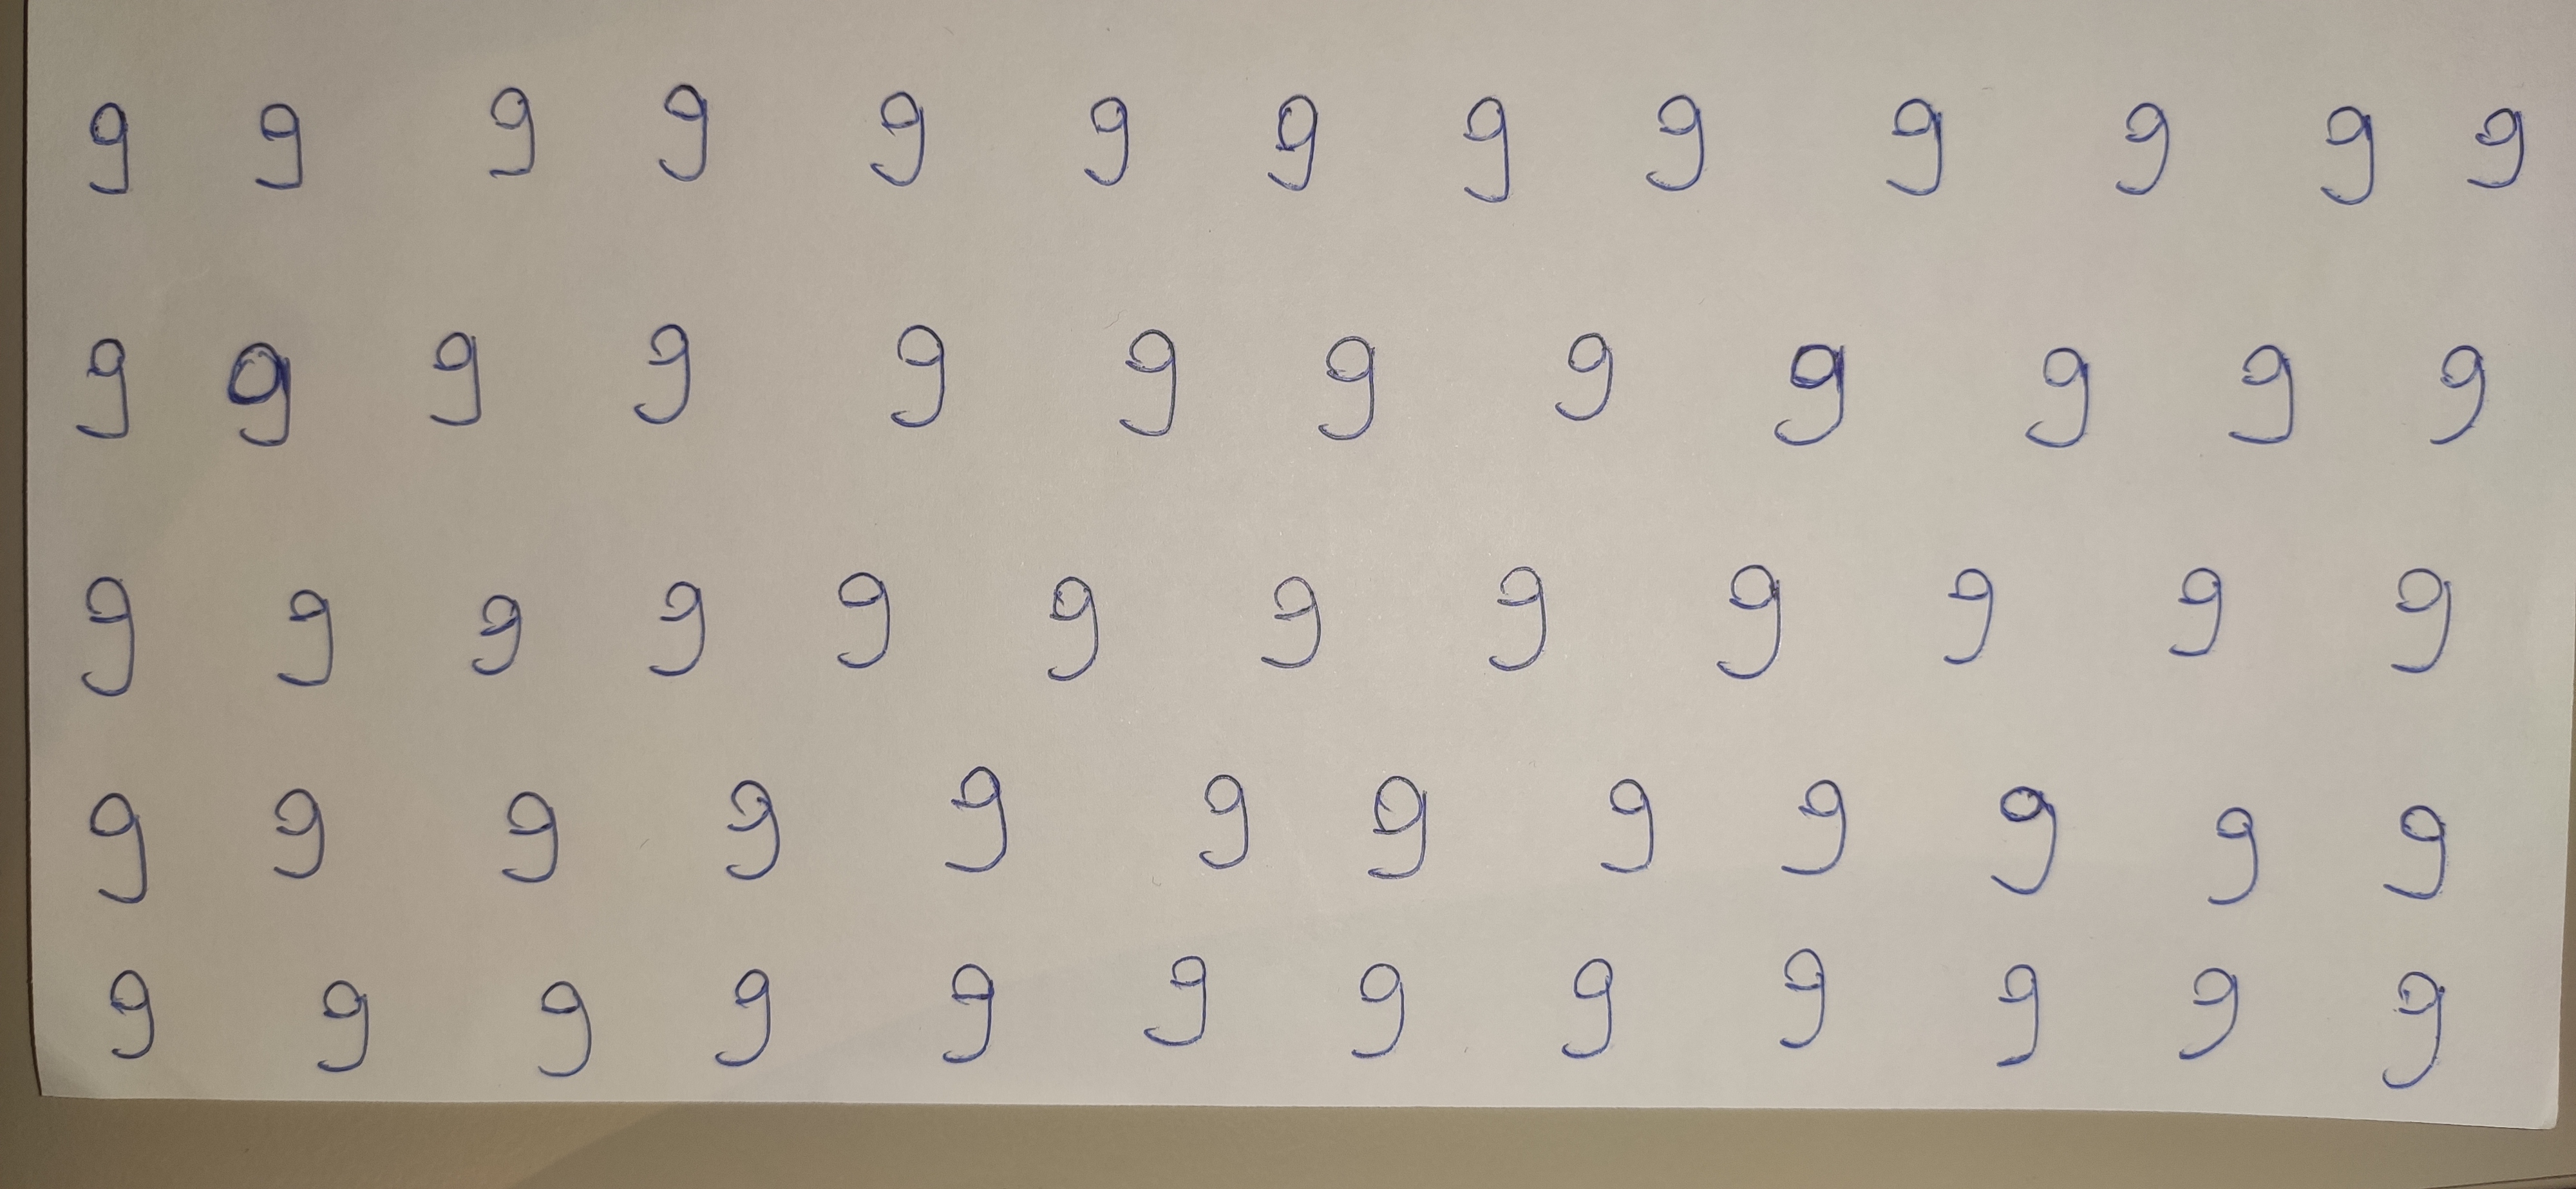 9 9 9 9 9 9 9 9 9 9 9 9 9
9 9 9 9 9 9 9 9 9 9 9 9
9 9 9 9 9 9 9 9 9 9 9 9
9 9 9 9 9 9 9 9 9 9 9 9
9 9 9 9 9 9 9 9 9 9 9 9